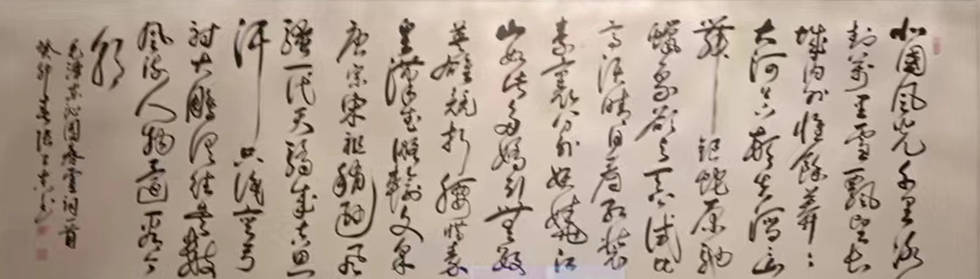 北国风光千里冰
封万里雪飘望长
城内外惟余莽〻
大河上下顿失滔〻山
舞银蛇原驰
蜡象欲与天公试比
高须晴日看红装
素裹分外妖娆江
山如此多娇引无数
英雄竞折腰惜秦
皇汉武略输文采
唐宗宋祖稍逊风
骚一代天骄成吉思
汗只识弯弓
射大雕俱往矣数
风流人物还看今
朝
毛泽东沁园春雪词一首
癸卯春